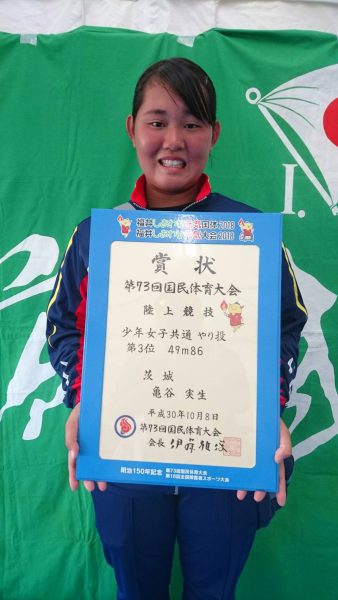 福井しあわせ元気国体2018
福井しあわせ元気大会2018
賞状
第73回国民体育大会
陸上競技
少年女子共通 やり投
第3位 49m86
茨城
亀谷 実生
平成30年10月8日
第73回国民体育大会
会長
明治150年記念 第73回国民体育大会
第18回全国障害者スポーツ大会
I.